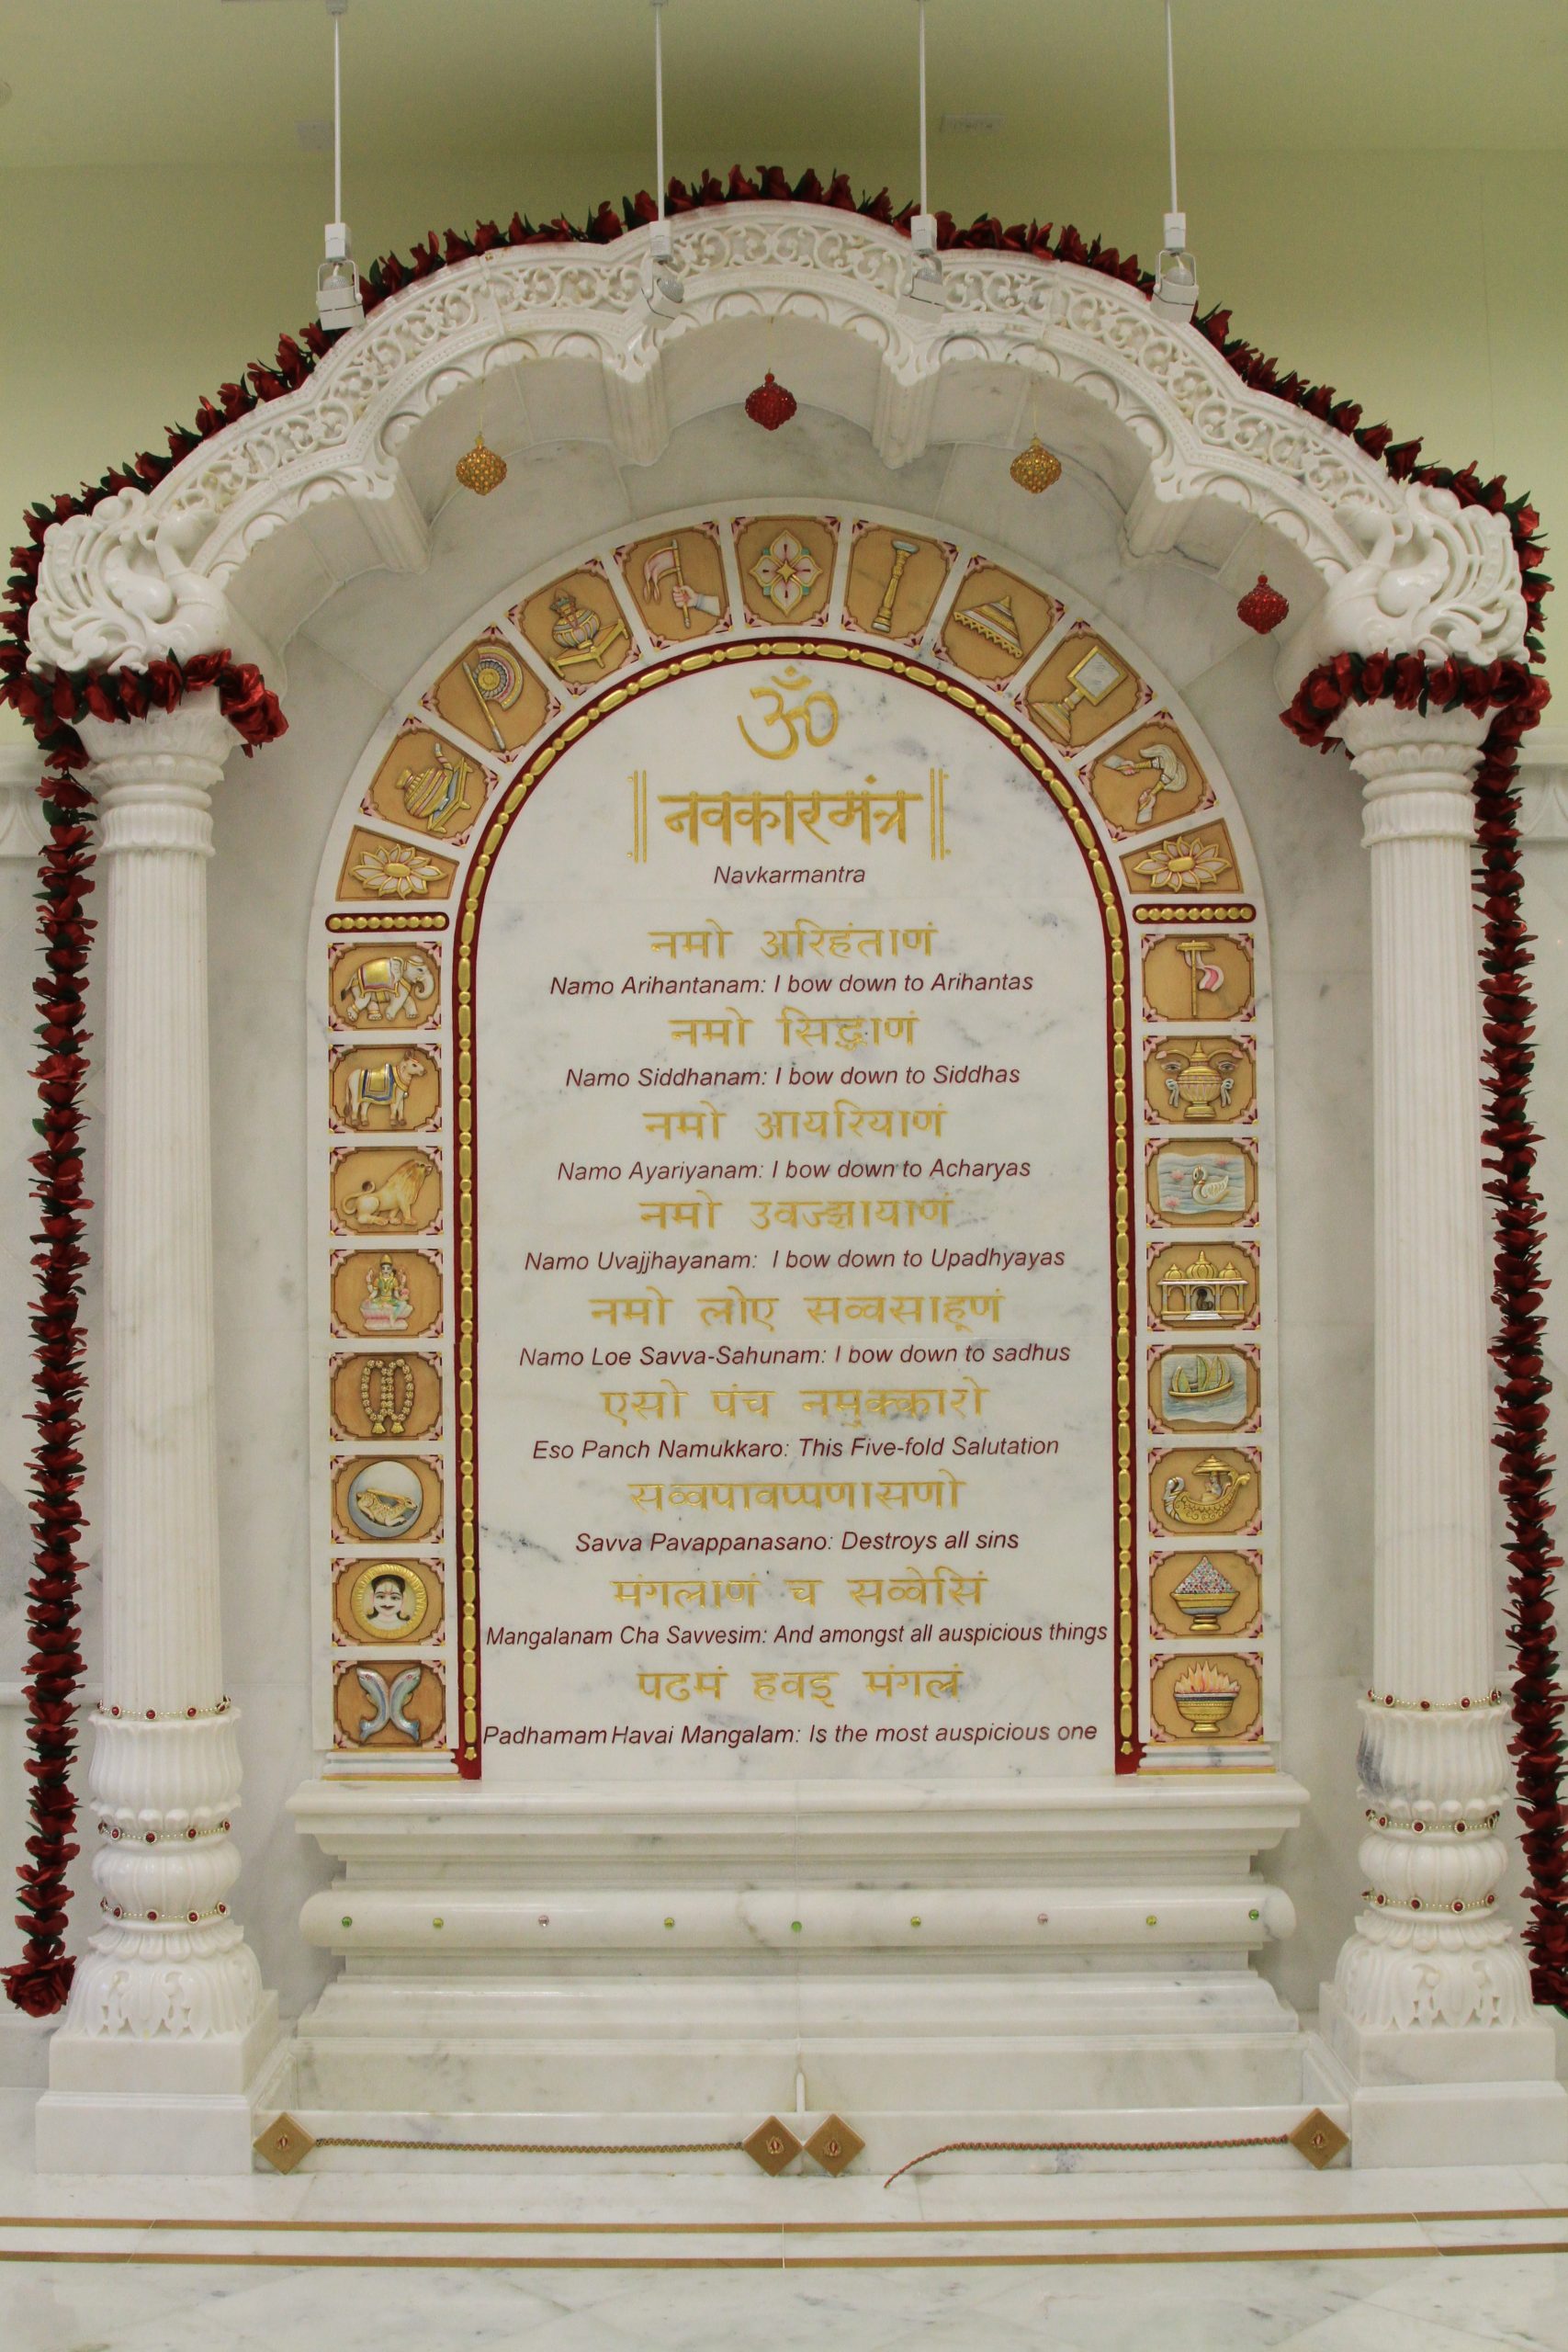 ॐ
॥ नवकारमंत्र ॥
Navkarmantra
नमो अरिहंताणं
Namo Arihantanam: I bow down to Arihantas
नमो सिद्धाणं
Namo Siddhanam: I bow down to Siddhas
नमो आयरियाणं
Namo Ayariyanam: I bow down to Acharyas
नमो उवज्झायाणं
Namo Uvajjhayanam: I bow down to Upadhyayas
नमो लोए सव्वसाहूणं
Namo Loe Savva-Sahunam: I bow down to sadhus
एसो पंच नमुक्कारो
Eso Panch Namukkaro: This Five-fold Salutation
सव्वपावप्पणासणो
Savva Pavappanasano: Destroys all sins
मंगलाणं च सव्वेसिं
Mangalanam Cha Savvesim: And amongst all auspicious things
पढमं हवइ मंगलं
Padhamam Havai Mangalam: Is the most auspicious one